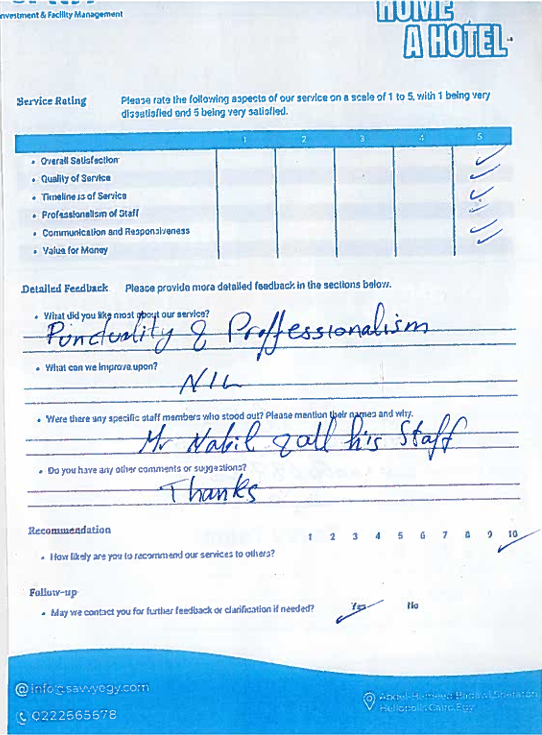 nvestment & Facility Management
HOME
A HOTEL
Service Rating
Please rate the following aspects of our service on a scale of 1 to 5, with 1 being very
dissatisfied and 5 being very satisfied.
1 2 3 4 5
• Overall Satisfaction
• Quality of Service
• Timeliness of Service
• Professionalism of Staff
• Communication and Responsiveness
• Value for Money
Detailed Feedback Please provide more detailed feedback in the sections below.
• What did you like most about our service?
Punctuality & Proffessionalism
• What can we improve upon?
NIL
• Were there any specific staff members who stood out? Please mention their names and why.
Mr Nabil & all his Staff
• Do you have any other comments or suggestions?
Thanks
Recommendation
1 2 3 4 5 6 7 8 9 10
• How likely are you to recommend our services to others?
Follow-up
• May we contact you for further feedback or clarification if needed? Yes No
@info@savvyegy.com
Abdel-Hameed Badawi, Sheraton
Heliopolis Cairo, Egy
0222665678